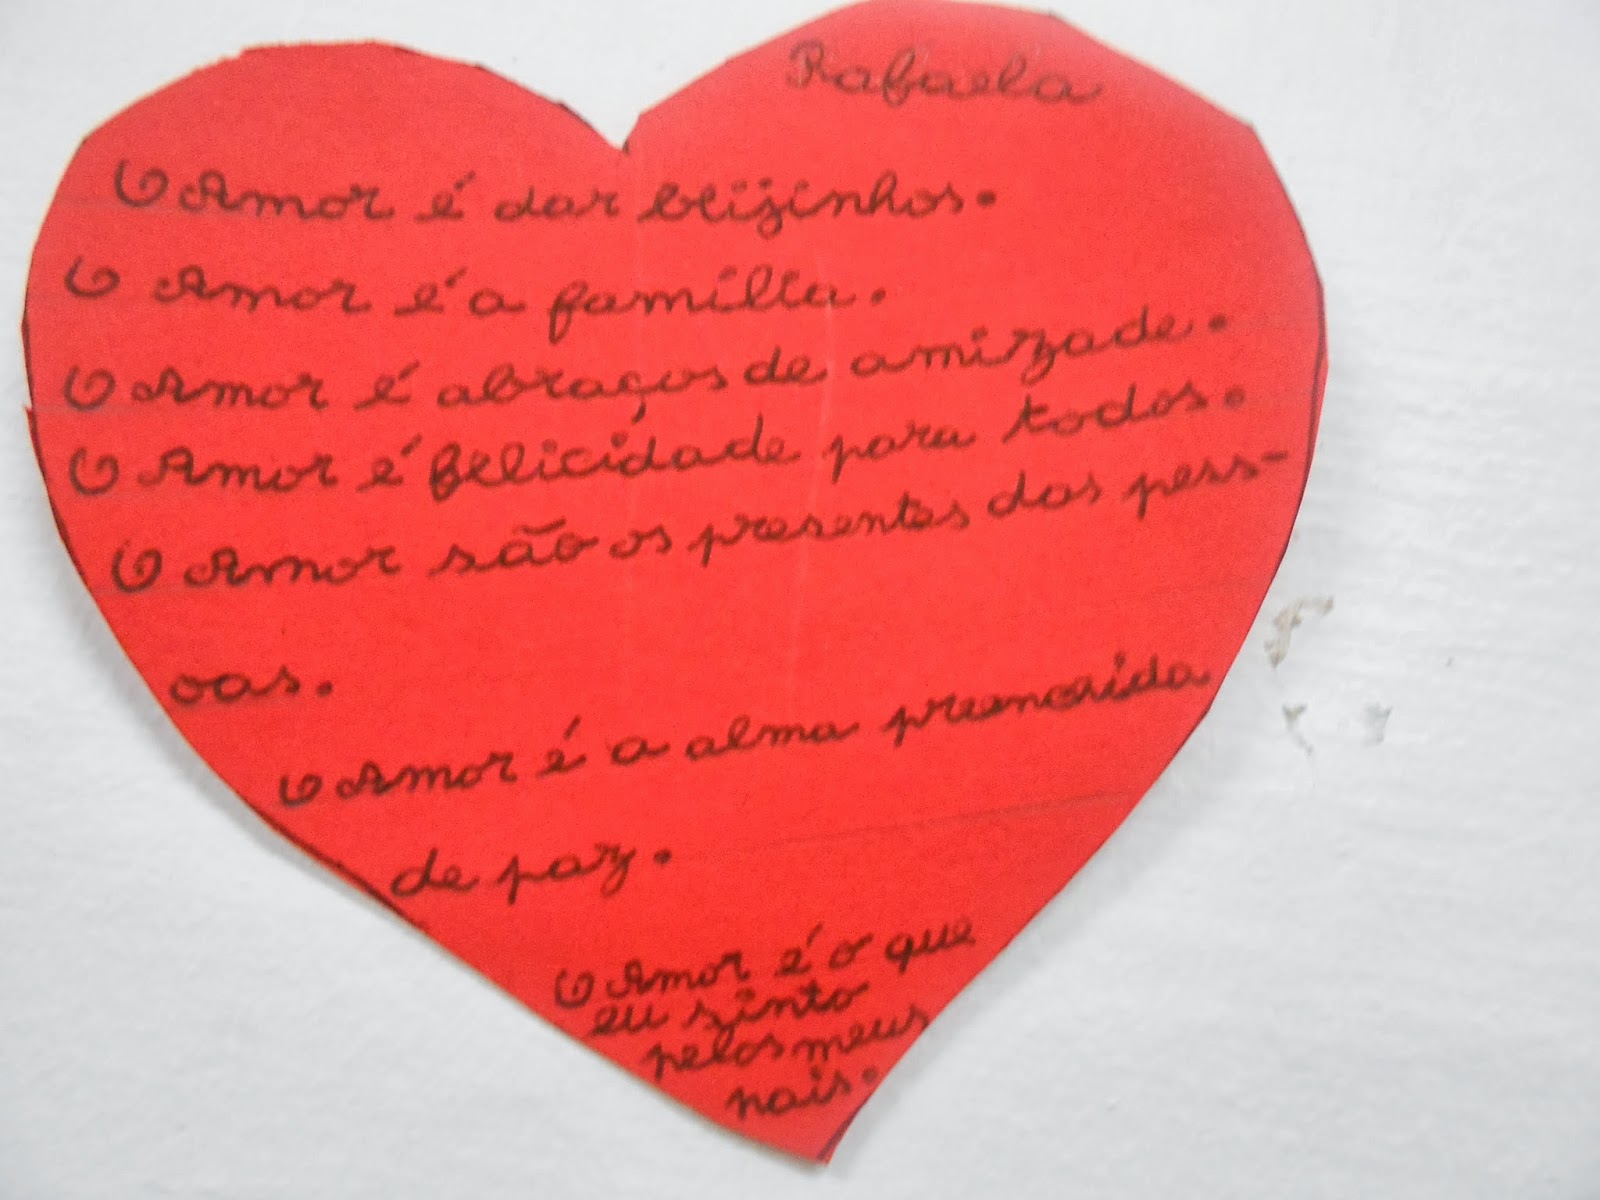 Rafaela
O Amor é dar beijinhos.
O Amor é a família.
O Amor é abraços de amizade.
O Amor é felicidade para todos.
O Amor são os presentes das pess-
oas.
O Amor é a alma
de paz.
O Amor é o que
eu sinto
pelos meus
pais.